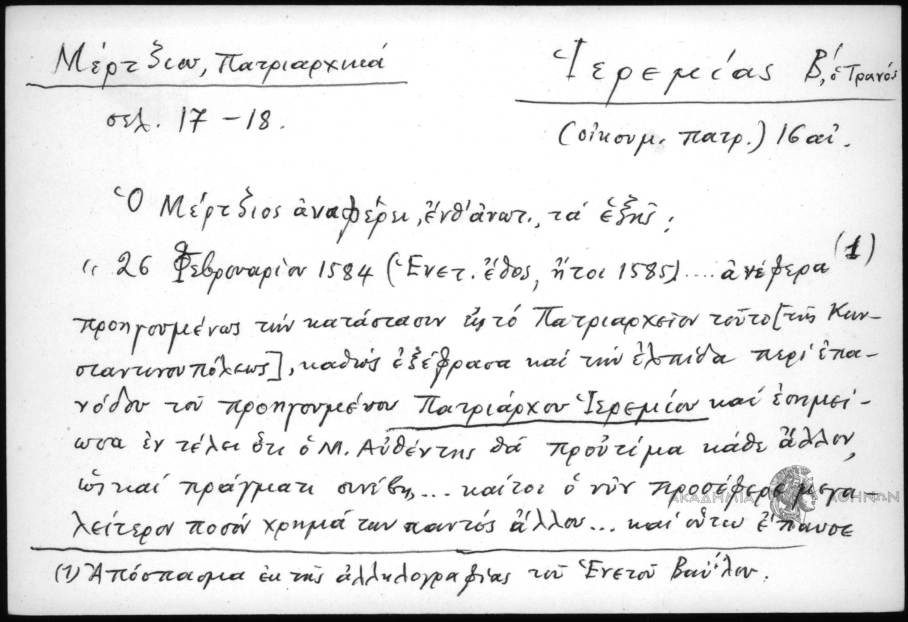 Μέρτζιου, Πατριαρχικά
Ἱερεμίας Β΄, ὁ Τρανός
σελ. 17 - 18.
(οἰκουμ. πατρ.) 16 αἰ.
Ὁ Μέρτζιος ἀναφέρει, ἔνθ' ἀνωτ., τά ἑξῆς:
"26 Φεβρουαρίου 1584 (Ἑνετ. ἔθος, ἤτοι 1585).... ἀνέφερα (1)
προηγουμένως τήν κατάστασιν εἰς τό Πατριαρχεῖον τοῦτο [τῆς Κων-
σταντινουπόλεως], καθώς ἐξέφρασα καί τήν ἐλπίδα περί ἐπα-
νόδου τοῦ προηγουμένου Πατριάρχου Ἱερεμίου καί ἐσημεί-
ωσα ἐν τέλει ὅτι ὁ Μ. Αὐθέντης θά προὐτίμα κάθε ἄλλον,
ὡς καί πράγματι συνέβη,... καίτοι ὁ νῦν προσέφερε μεγα-
λείτερον ποσόν χρημάτων παντός ἄλλου... καί οὕτω ἔπαυσε
(1) Ἀπόσπασμα ἐκ τῆς ἀλληλογραφίας τοῦ Ἑνετοῦ Βαΐλου.
ΑΚΑΔΗΜΙΑ ΑΘΗΝΩΝ